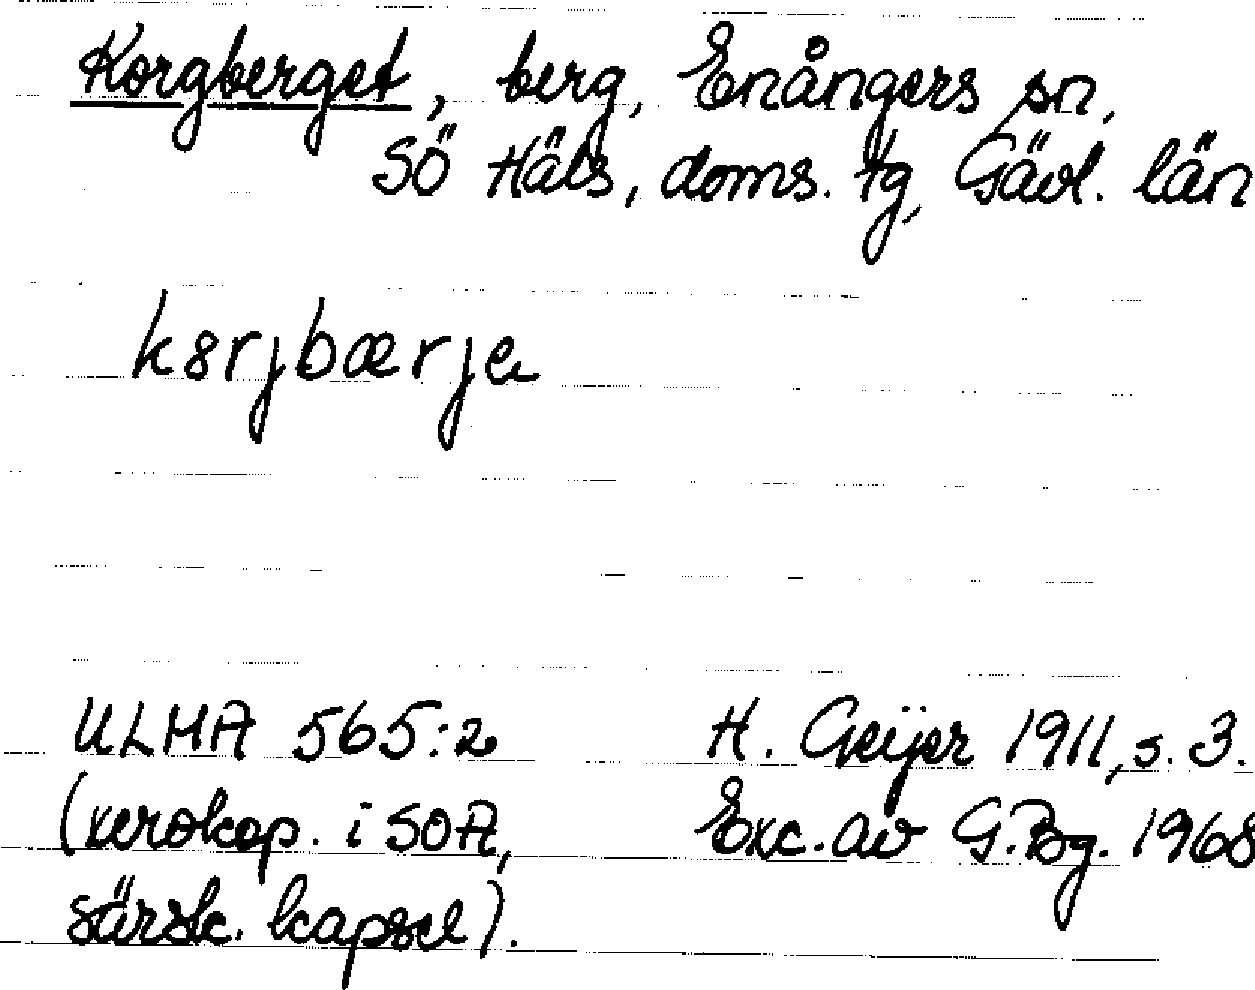 Korgberget, berg, Enångers sn,
Sö Häls, doms. tg, Gävl. län
k8rjbærje
ULMA 565:2
(xerokop. i SOA,
särsk. kapsel).
H. Geijer 1911, s. 3.
Exc. av G.Bg. 1968